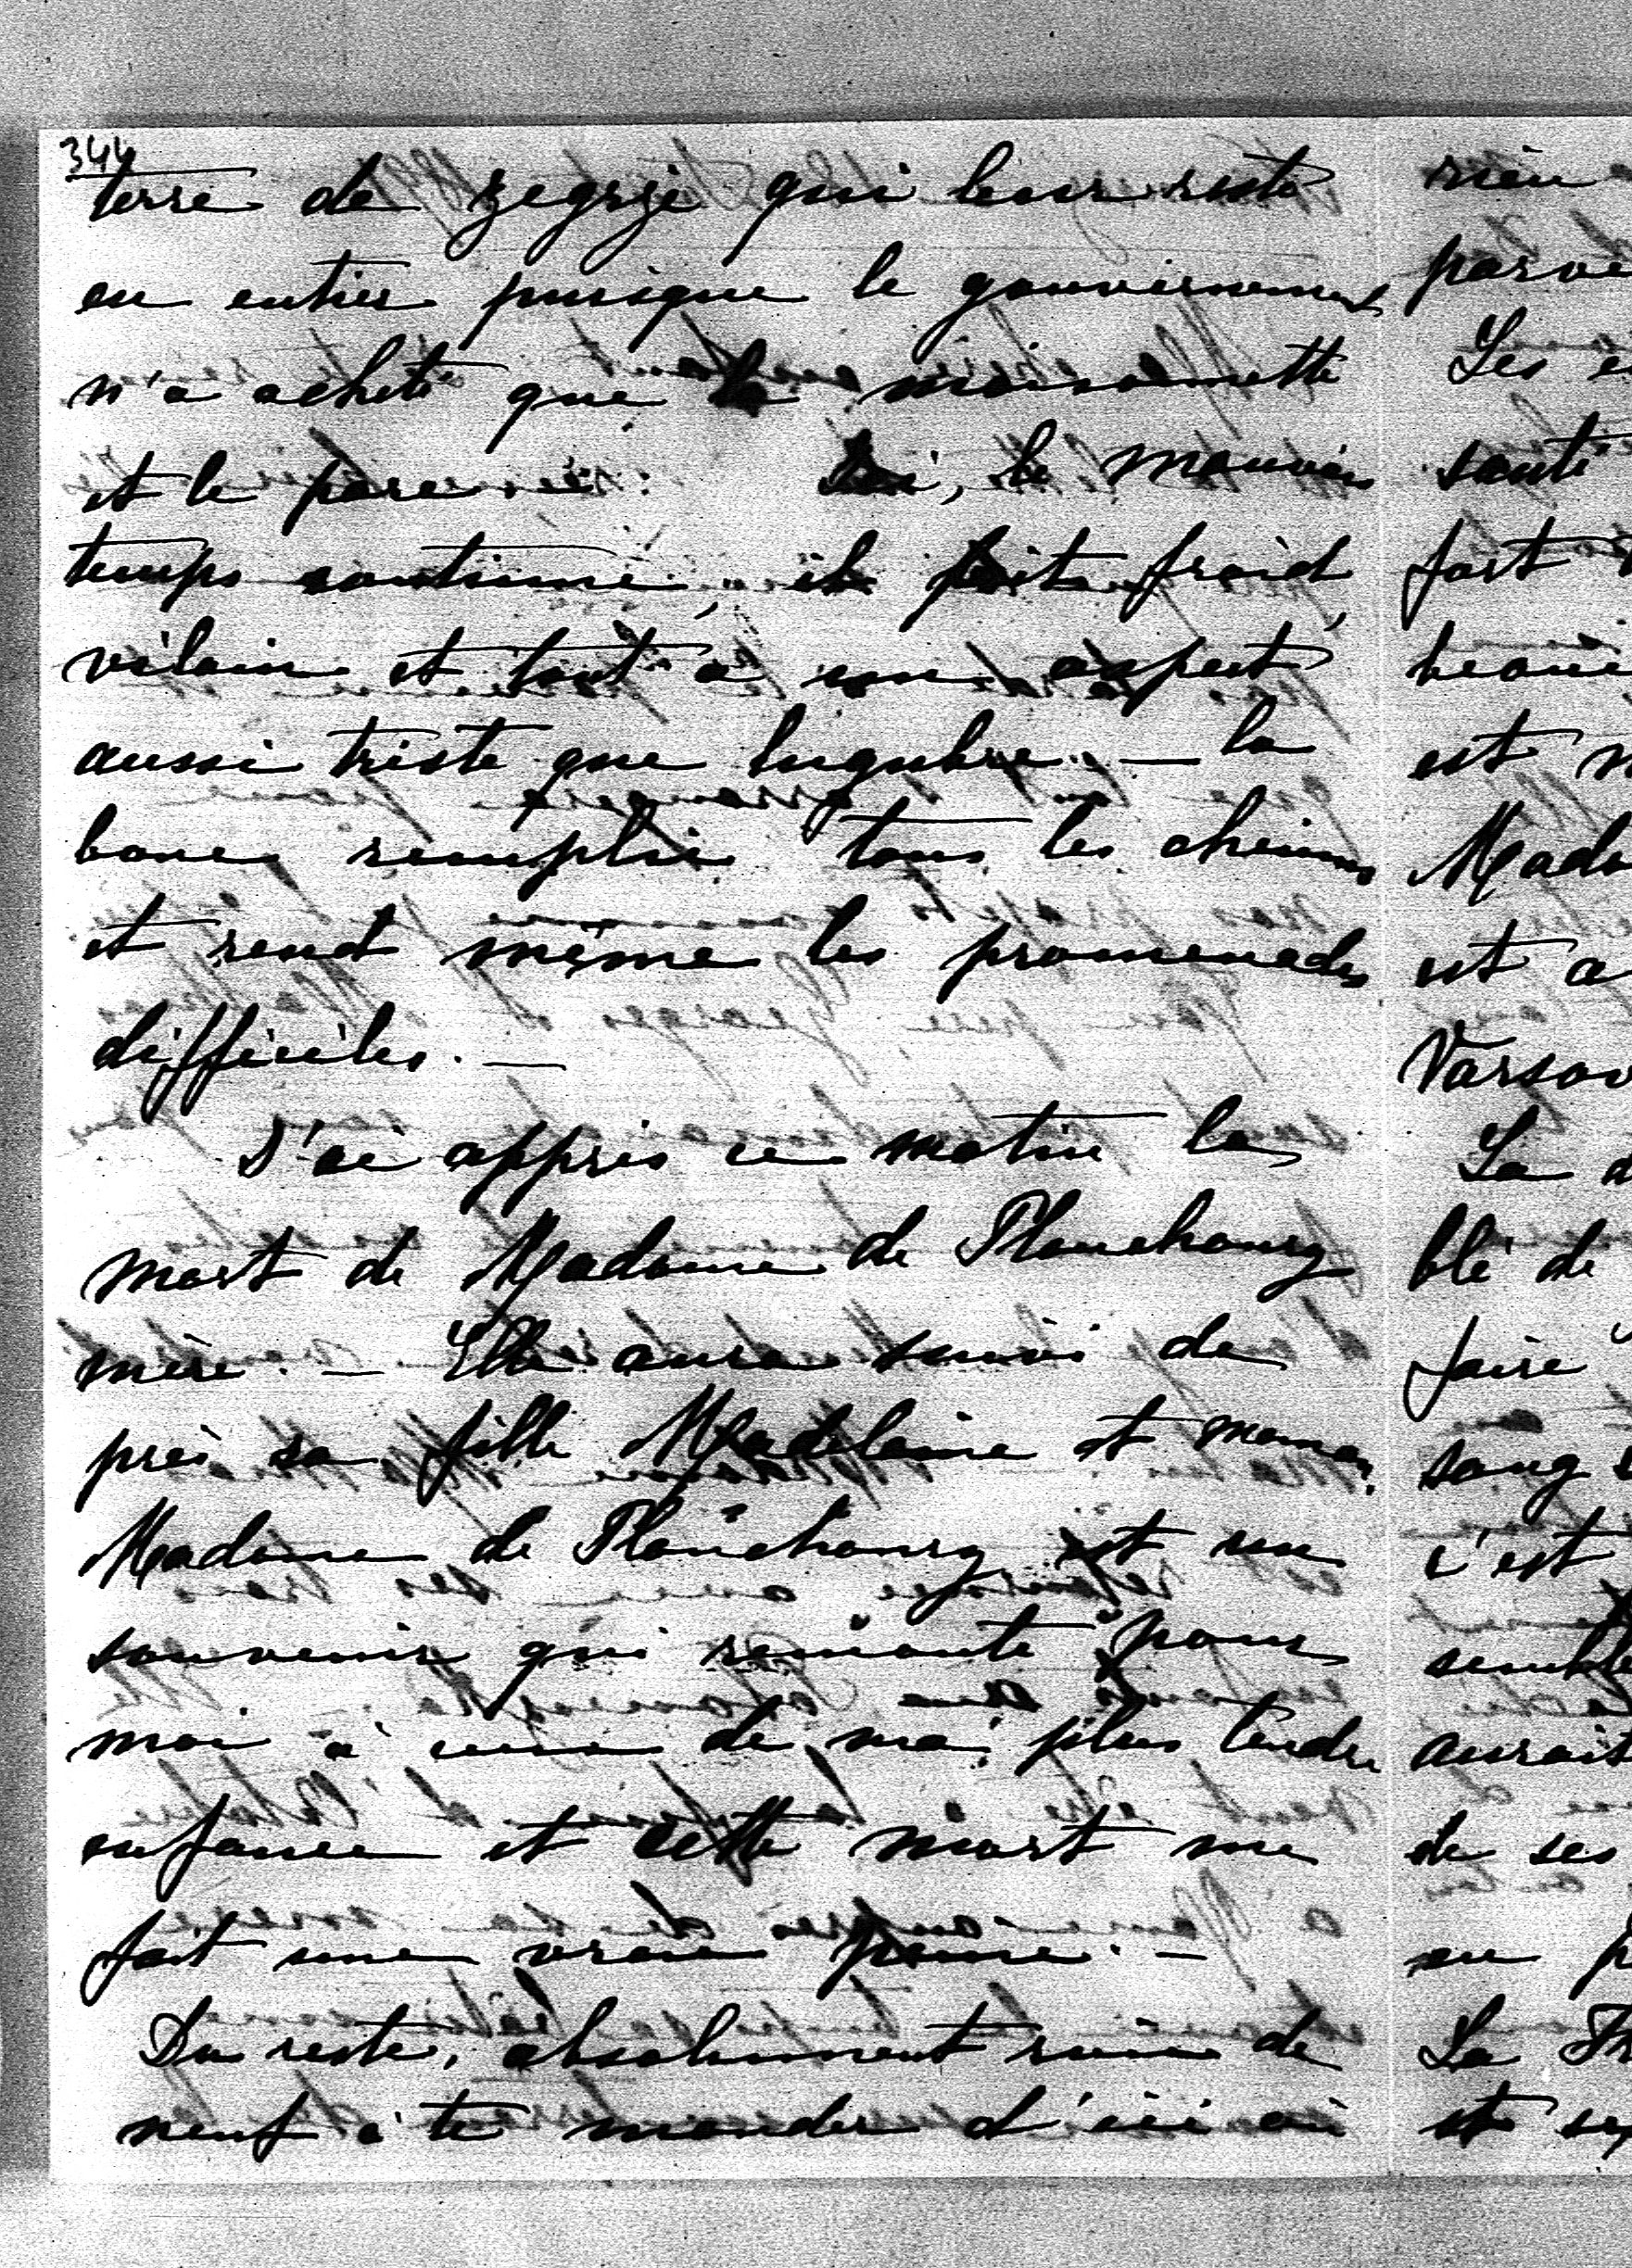 344
terre de Zegrze qui leur reste
en entier puisque le gouvernement
n'a acheté que la maisonnette
et le parc. Ici, le mauvais
temps continue, il fait froid,
vilain et tout a un aspect
aussi triste que lugubre — la
boue remplie tous les chemins
et rend même les promenades
difficiles. —
J'ai appris ce matin la
mort de Madame de
mère. — Elle aura suivi de
près sa fille Madelaine et maman.
Madame de est un
souvenir qui remonte pour
moi à ceux de ma plus tendre
enfance et cette mort me
fait une vraie peine. —
Du reste, absolument rien de
neuf à te mander d'ici où
rien
parve
Les e
santé
fort
beauc
est m
Mada
est a
Varsov
La d
blé de
faire
sang
c'est
semble
aurait
de ses
en p
La
et